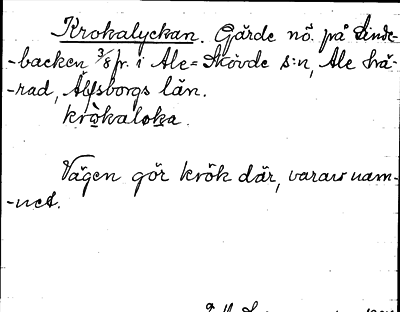 Krokalyckan. Gärde nö. på Linde-
-backen 3/8 fr. i Ale-Skövde s:n, Ale hä-
-rad, Älfsborgs län.
kròkaloka.
Vägen gör krök där, varav nam-
-net.